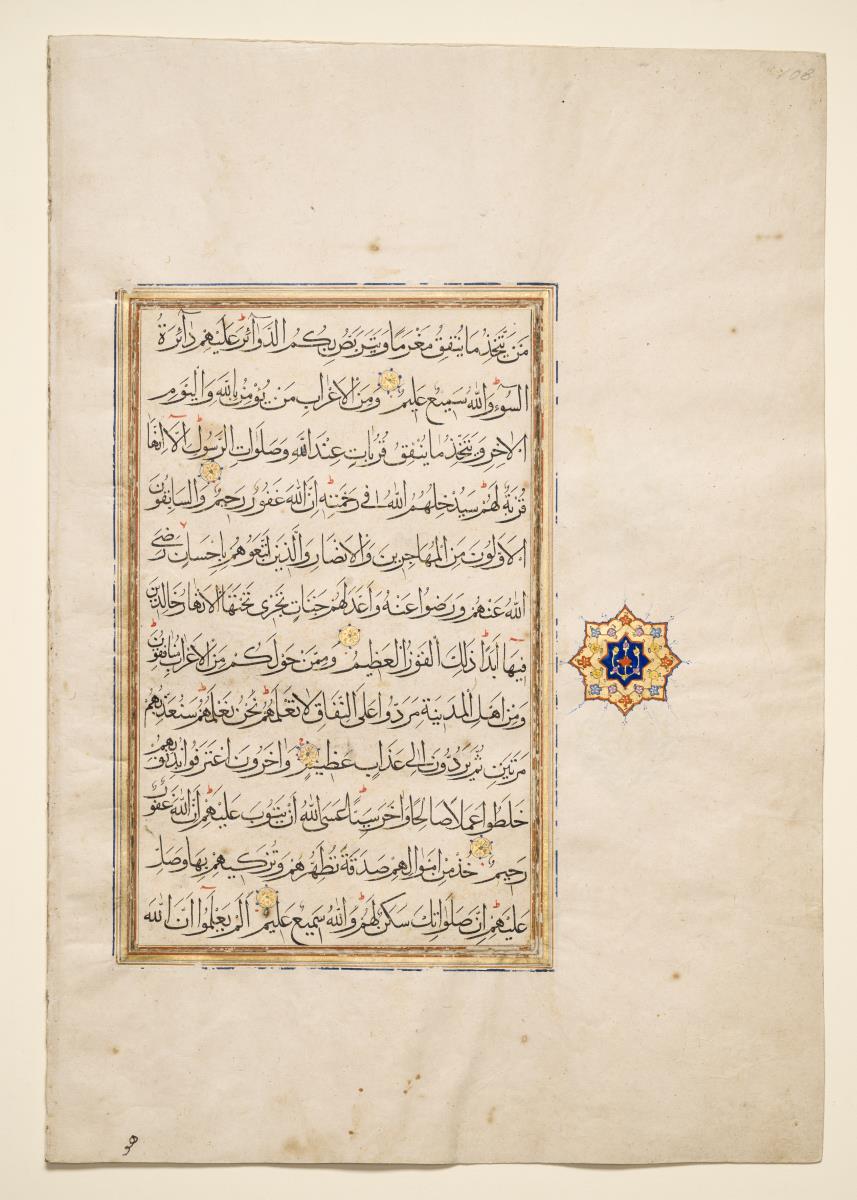 108
مَنْ يَتَّخِذُ مَا يُنْفِقُ مَغْرَمًا وَيَتَرَبَّصُ بِكُمُ الدَّوَآئِرَ عَلَيْهِمْ دَآئِرَةُ
السَّوْءِ وَاللّٰهُ سَمِيعٌ عَلِيمٌ وَمِنَ الْاَعْرَابِ مَنْ يُؤْمِنُ بِاللّٰهِ وَالْيَوْمِ
الْاٰخِرِ وَيَتَّخِذُ مَا يُنْفِقُ قُرُبَاتٍ عِنْدَ اللّٰهِ وَصَلَوَاتِ الرَّسُولِ اَلَآ اِنَّهَا
قُرْبَةٌ لَهُمْ سَيُدْخِلُهُمُ اللّٰهُ فِي رَحْمَتِهِ اِنَّ اللّٰهَ غَفُورٌ رَحِيمٌ وَالسَّابِقُونَ
الْاَوَّلُونَ مِنَ الْمُهَاجِرِينَ وَالْاَنْصَارِ وَالَّذِينَ اتَّبَعُوهُمْ بِاِحْسَانٍ رَضِيَ
اللّٰهُ عَنْهُمْ وَرَضُوا عَنْهُ وَاَعَدَّ لَهُمْ جَنَّاتٍ تَجْرِي تَحْتَهَا الْاَنْهَارُ خَالِدِينَ
فِيهَآ اَبَدًا ذٰلِكَ الْفَوْزُ الْعَظِيمُ وَمِمَّنْ حَوْلَكُمْ مِنَ الْاَعْرَابِ مُنَافِقُونَ
وَمِنْ اَهْلِ الْمَدِينَةِ مَرَدُوا عَلَى النِّفَاقِ لَا تَعْلَمُهُمْ نَحْنُ نَعْلَمُهُمْ سَنُعَذِّبُهُمْ
مَرَّتَيْنِ ثُمَّ يُرَدُّونَ اِلٰى عَذَابٍ عَظِيمٍ وَاٰخَرُونَ اعْتَرَفُوا بِذُنُوبِهِمْ
خَلَطُوا عَمَلًا صَالِحًا وَاٰخَرَ سَيِّئًا عَسَى اللّٰهُ اَنْ يَتُوبَ عَلَيْهِمْ اِنَّ اللّٰهَ غَفُورٌ
رَحِيمٌ خُذْ مِنْ اَمْوَالِهِمْ صَدَقَةً تُطَهِّرُهُمْ وَتُزَكِّيهِمْ بِهَا وَصَلِّ
عَلَيْهِمْ اِنَّ صَلَوَاتِكَ سَكَنٌ لَهُمْ وَاللّٰهُ سَمِيعٌ عَلِيمٌ اَلَمْ يَعْلَمُوٓا اَنَّ اللّٰهَ
هو